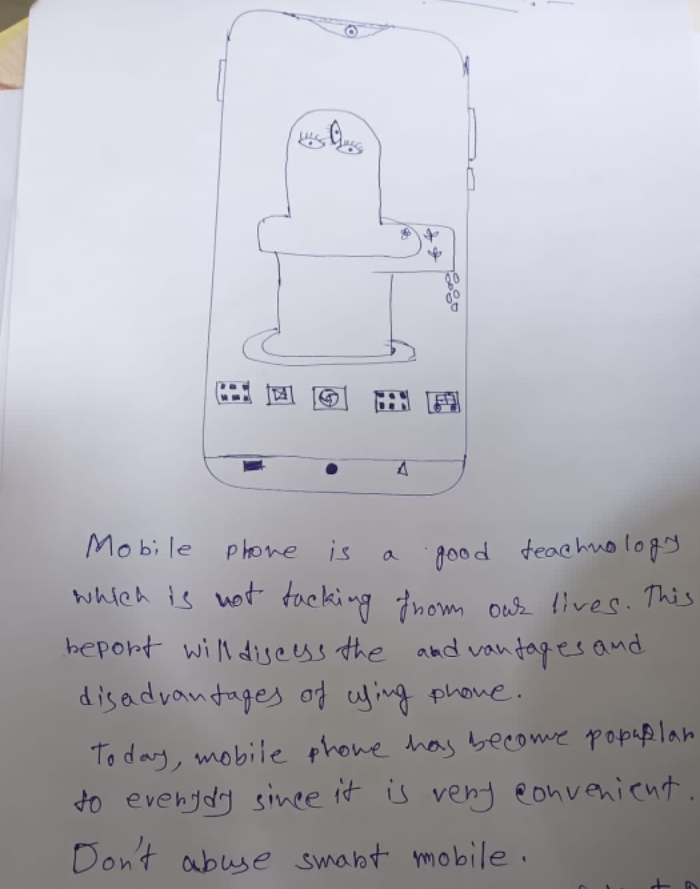 Mobile phone is a good teachnology
which is not tacking from our lives. This
report will discess the aadvantages and
disadvantages of using phone.
Today, mobile phone has become popular
to everydy since it is very convenient.
Don't abuse smart mobile.